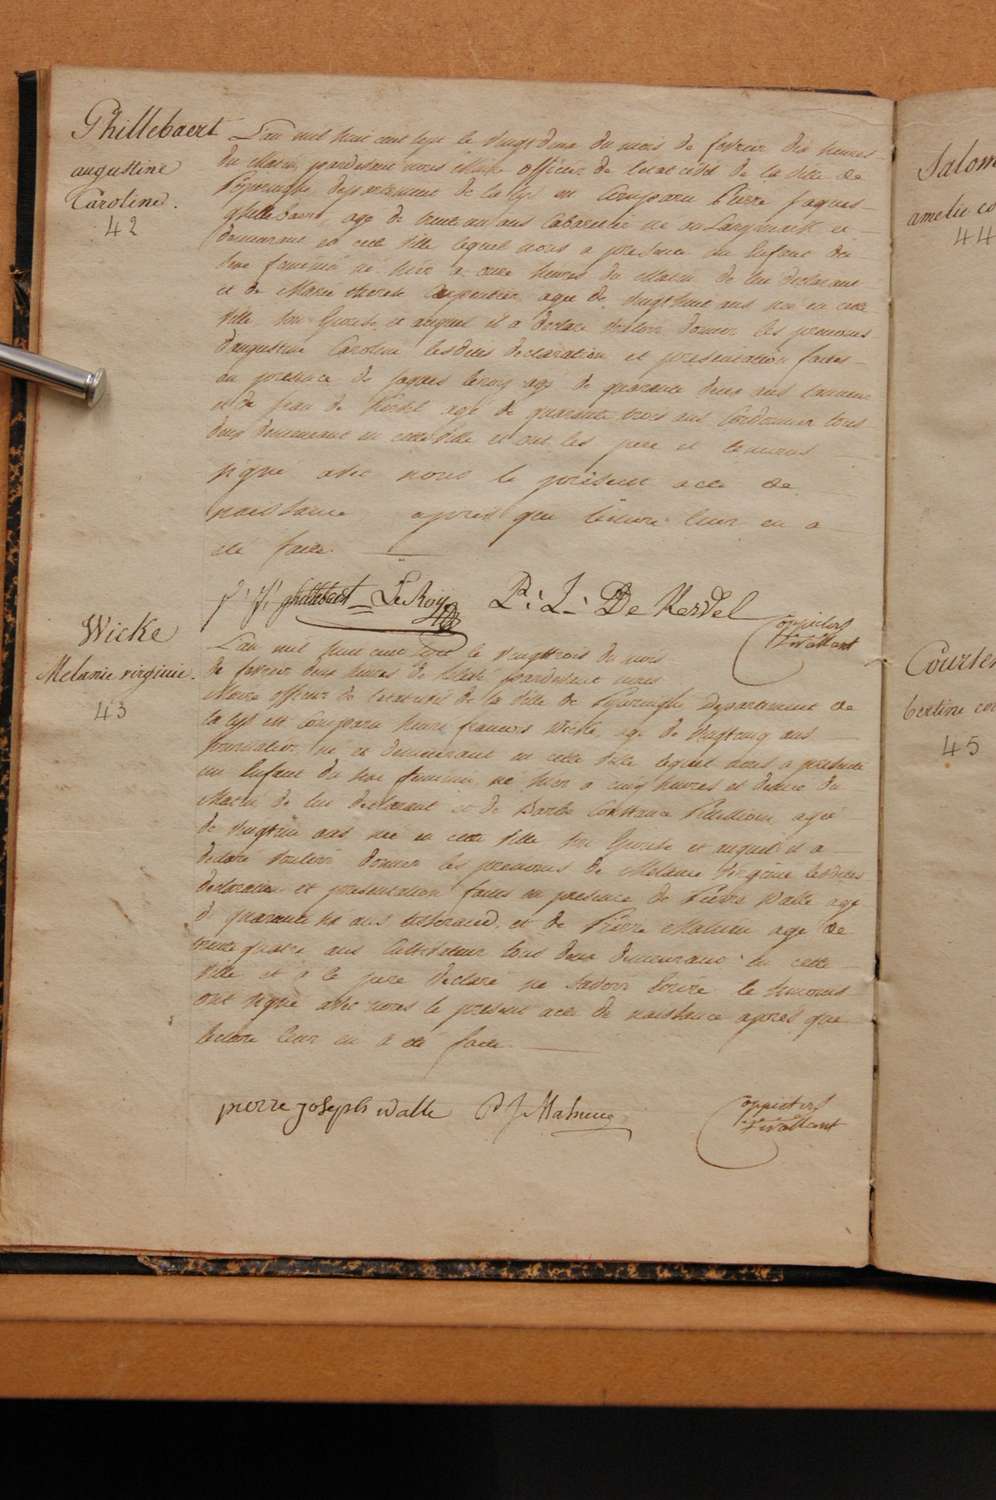 Ghillebaert
augustine
Caroline.
42
L'an mil huit cent sept le vingt deux du mois de fevrier dix heures
du Matin pardevant nous Maire officier de l'etat civil de la ville de
Poperinghe departement de la Lys est comparu Pierre Jaques
ghillebaert, agé de trente un ans Cabaretier né en Langemarck et
demeurant en cette ville lequel nous a presenté un Enfant du
Sexe feminin né hier a onze heures du Matin de lui declarant
et de Marie therese Carpentier agée de vingthuit ans née en cette
ville Son Epouse, et auquel il a declaré vouloir donner les prenoms
d'augustine Caroline lesdites declaration et presentation faites
en presence de jaques leroy agé de quarante deux ans
et de jean de Kerdel agé de quarante trois ans Cordonnier tous
deux demeurant en cette ville et ont les pere et temoins
signé avec nous le présent acte de
naissance après que lecture leur en a
eté faite.
p: j: ghillebaert LeRoy P: L: De Kerdel
Wicke
Melanie virginie.
43
L'an mil huit cent sept le vingttrois du mois
de fevrier deux heures de relevée pardevant nous
Maire officier de l'etat civil de la Ville de Poperinghe Departement de
la Lys est Comparu francois Wicke, agé de vingtcinq ans
né et demeurant en cette ville lequel nous a presenté
un Enfant du sexe feminin né hier a cinq heures et demie du
Matin de lui declarant et de Barbe Constance agée
de vingtun ans née en cette Ville Son Epouse et auquel il a
declaré vouloir donner les prenoms de Melanie Virginie lesdites
declaration et presentation faites en presence de Pierre Walle agé
de quarante ans tisserand, et de Pierre Mahieu agé de
trente quatre ans Cultivateur tous deux demeurant en cette
ville et à le pere declaré ne Savoir écrire le temoins
ont signé avec nous le present acte de naissance apres que
lecture leur en a eté faite.
pierre joseph walle P J Mahieu
Salom
amelie co
44
Courten
bertine co
45